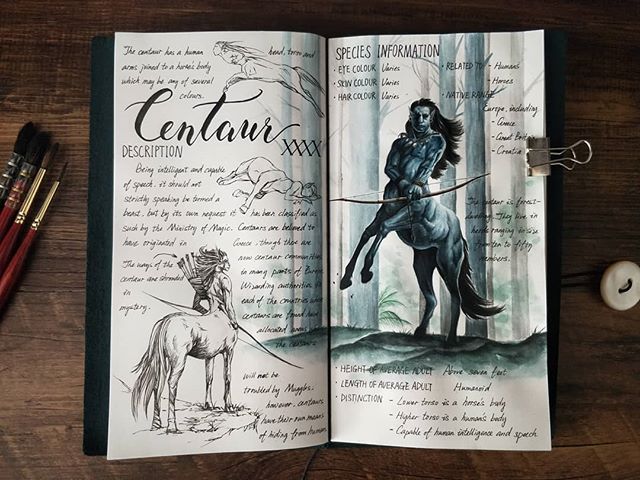 The centaur has a human head, torso and
arms joined to a horse's body
which may be any of several
colours.
Centaur
XXXX
DESCRIPTION
Being intelligent and capable
of speech, it should not
strictly speaking be termed a
beast, but by its own request it has been classified as
such by the Ministry of Magic. Centaurs are believed to
have originated in Greece, though there are
now centaur communities
in many parts of Europe.
Wizarding authorities in
each of the countries where
centaurs are found have
allocated areas where
the centaurs
will not be
troubled by Muggles,
however, centaurs
have their own means
of hiding from humans
The ways of the
centaur are shrouded
in
mystery.
SPECIES INFORMATION
· EYE COLOUR Varies
· SKIN COLOUR Varies
· HAIR COLOUR Varies
· RELATED TO - Humans
- Horses
· NATIVE RANGE
Europe, including
- Greece
- Great Britain
- Croatia
The centaur is forest-
dwelling. They live in
herds ranging in size
from ten to fifty
members.
· HEIGHT OF AVERAGE ADULT Above seven feet
· LENGTH OF AVERAGE ADULT Humanoid
· DISTINCTION - Lower torso is a horse's body
- Higher torso is a human's body
- Capable of human intelligence and speech